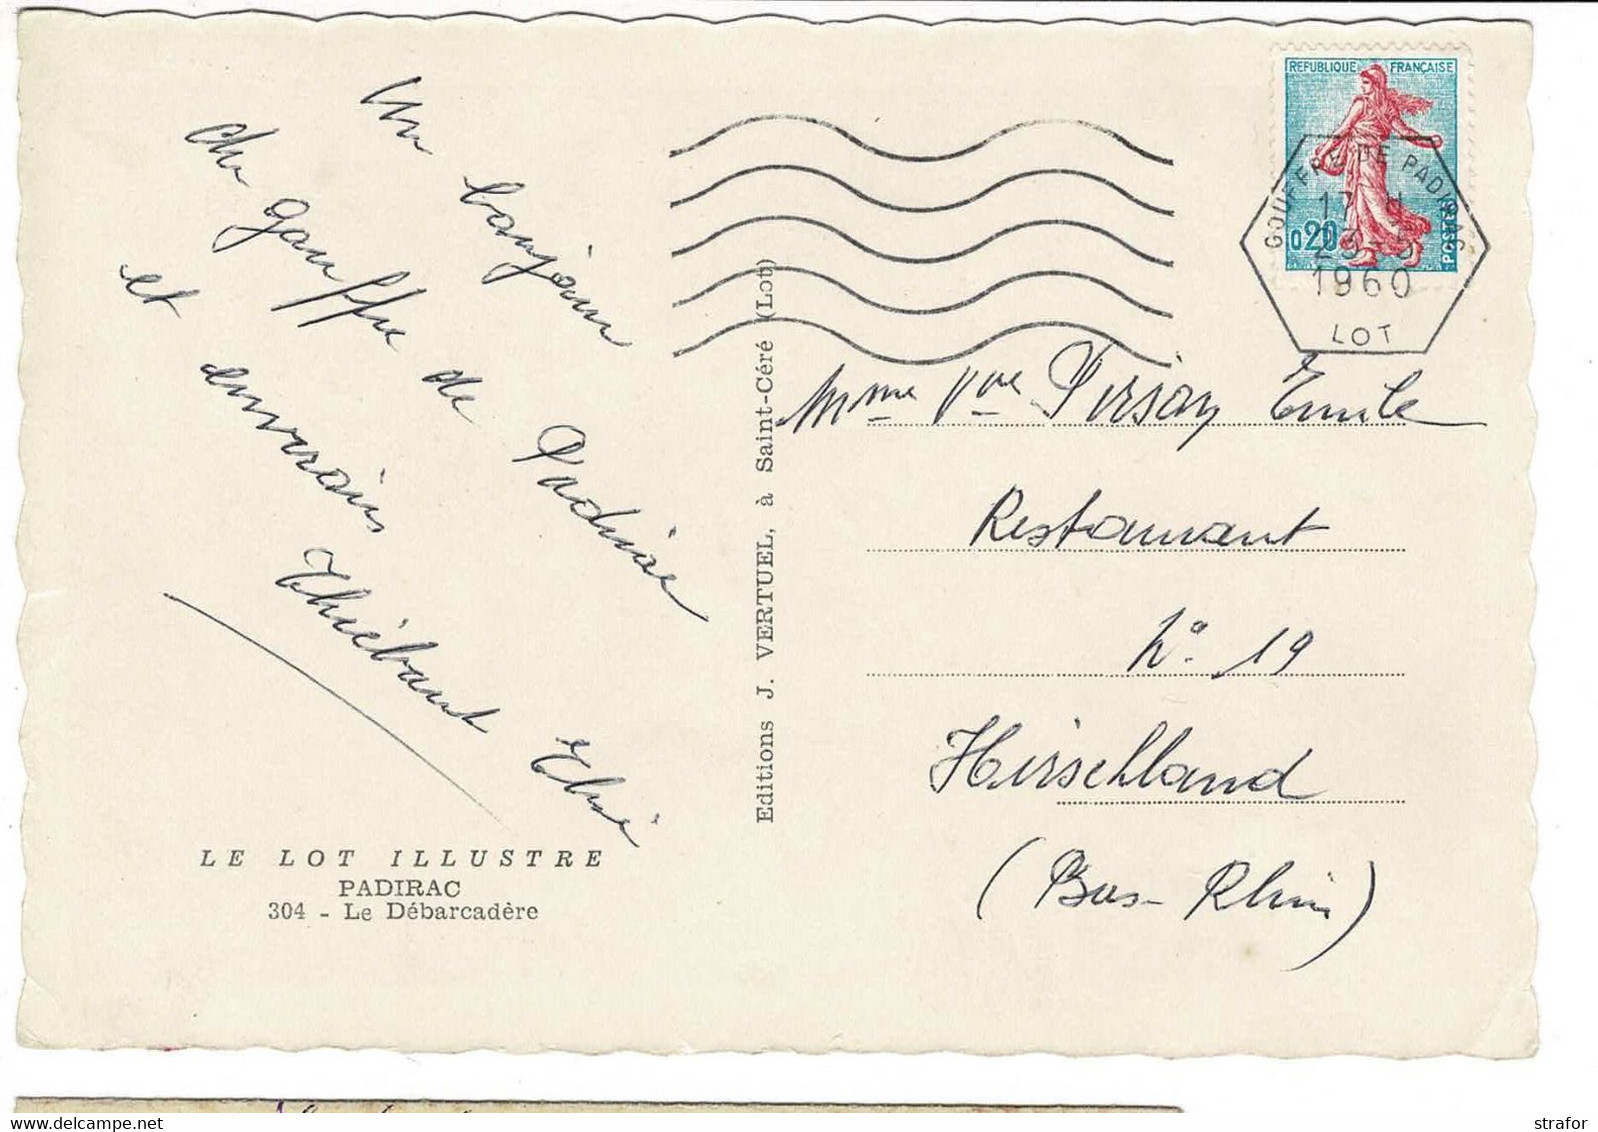 Un bonjour
du gouffre de Padirac
et environs
Thiébaut
LE LOT ILLUSTRE
PADIRAC
304 - Le Débarcadère
Editions J. VERTUEL, à Saint-Céré (Lot)
REPUBLIQUE FRANÇAISE
0,20
POSTES
GOUFFRE DE PADIRAC
17 H
1960
LOT
Mme Vve Pirson Emile
Restaurant
No 19
Hirschland
(Bas-Rhin)
strafor